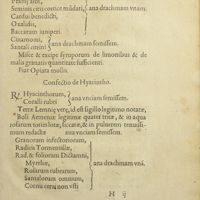 Seminis citri cortice mūdati, } ana drachmam vnam.
Cardui benedicti,
Oxalidis,
Baccarum iuniperi
Cinamomi, } ana drachmam semissem.
Santali citrini
Misce & excipe syruporum de limonibus & de
malis granatis quantitate sufficienti.
Fiat Opiata mollis.
Confectio de Hyacintho.
℞. Hyacinthorum, } ana vnciam semissem.
Coralli rubri
Terræ Lemniæ veræ, id est sigillo legitimo notatæ,
Boli Armeniæ legitimæ quater in aqua
rosarum totiés lotæ, siccatæ, & in puluerem tenuissi-
mum redactæ ana vnciam semissem.
Granorum infectoriorum,
Radicū Tormentillæ,
Rad. & foliorum Dictamni,
Myrrhæ, } ana drachmam vnā.
Rosarum rubrarum,
Santalorum omnium,
Cornu cerui non vsti
H ij